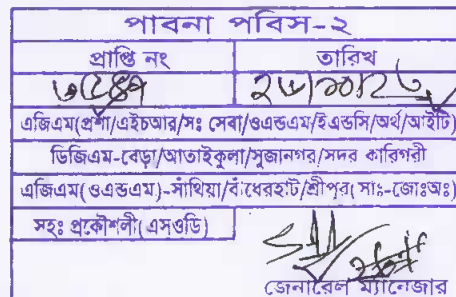 পাবনা পবিস-২
প্রাপ্তি নং তারিখ
এজিএম(প্রশা/এইচআর/সঃ সেবা/ওএন্ডএম/ইএন্ডসি/অর্থ/আইটি)
ডিজিএম-বেড়া/আতাইকুলা/সুজানগর/সদর কারিগরী
এজিএম(ওএন্ডএম)-সাঁথিয়া/বাঁধেরহাট/শ্রীপুর(সাঃ-জোঃঅঃ)
সহঃ প্রকৌশলী(এসওডি)
জেনারেল ম্যানেজার